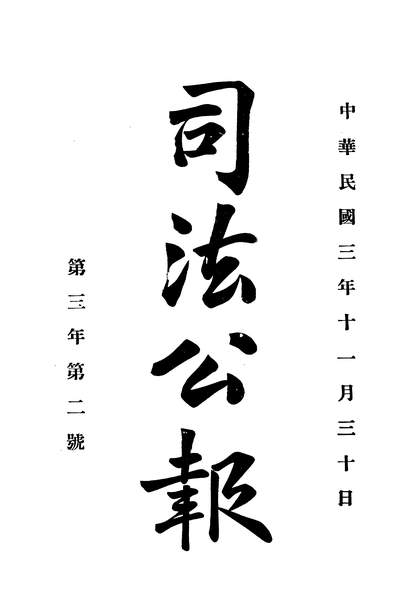 中華民國三年十一月三十日
司法公報
第三年第二號